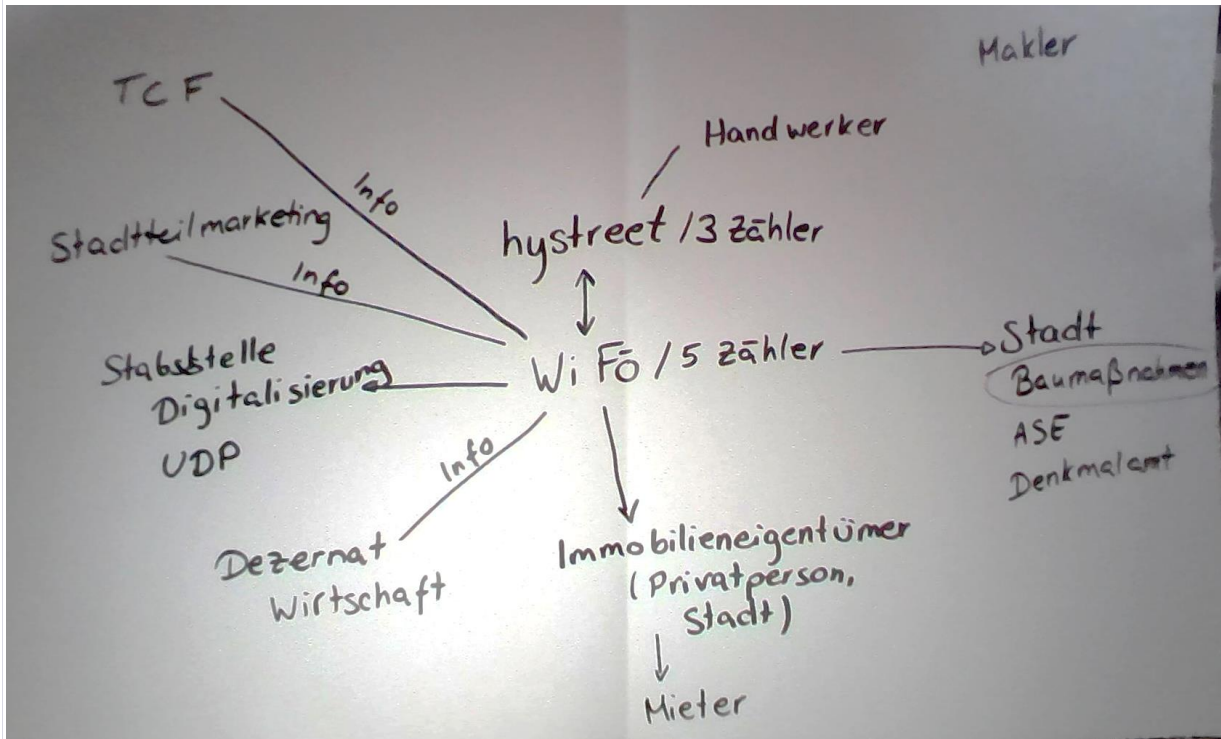 Makler
TCF
Handwerker
Info
Stadtteilmarketing
hystreet / 3 Zähler
Info
Stadt
Stabsstelle
Digitalisierung
UDP
WiFö / 5 Zähler
Baumaßnahmen
ASE
Denkmalamt
Info
Dezernat
Wirtschaft
Immobilieneigentümer
(Privatperson,
Stadt)
Mieter